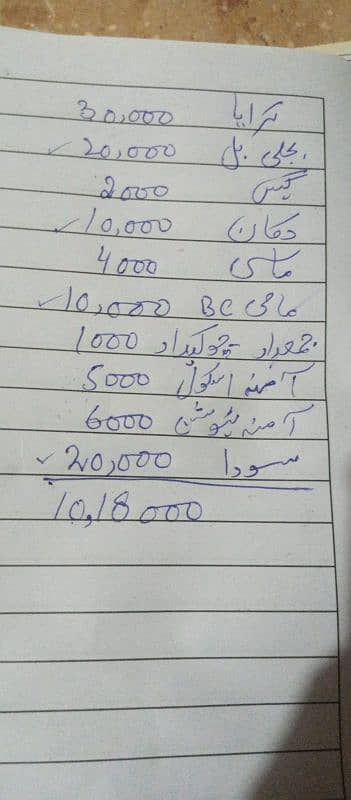 کرایا 30,000
بجلی بل 20,000 ✓
گیس 2000
دکان 10,000 ✓
ماسی 4000
مامی BC 10,000 ✓
جمعدار چوکیدار 1000
آمنہ اسکول 5000
آمنہ ٹیوشن 6000
سودا 20,000 ✓
10,18000